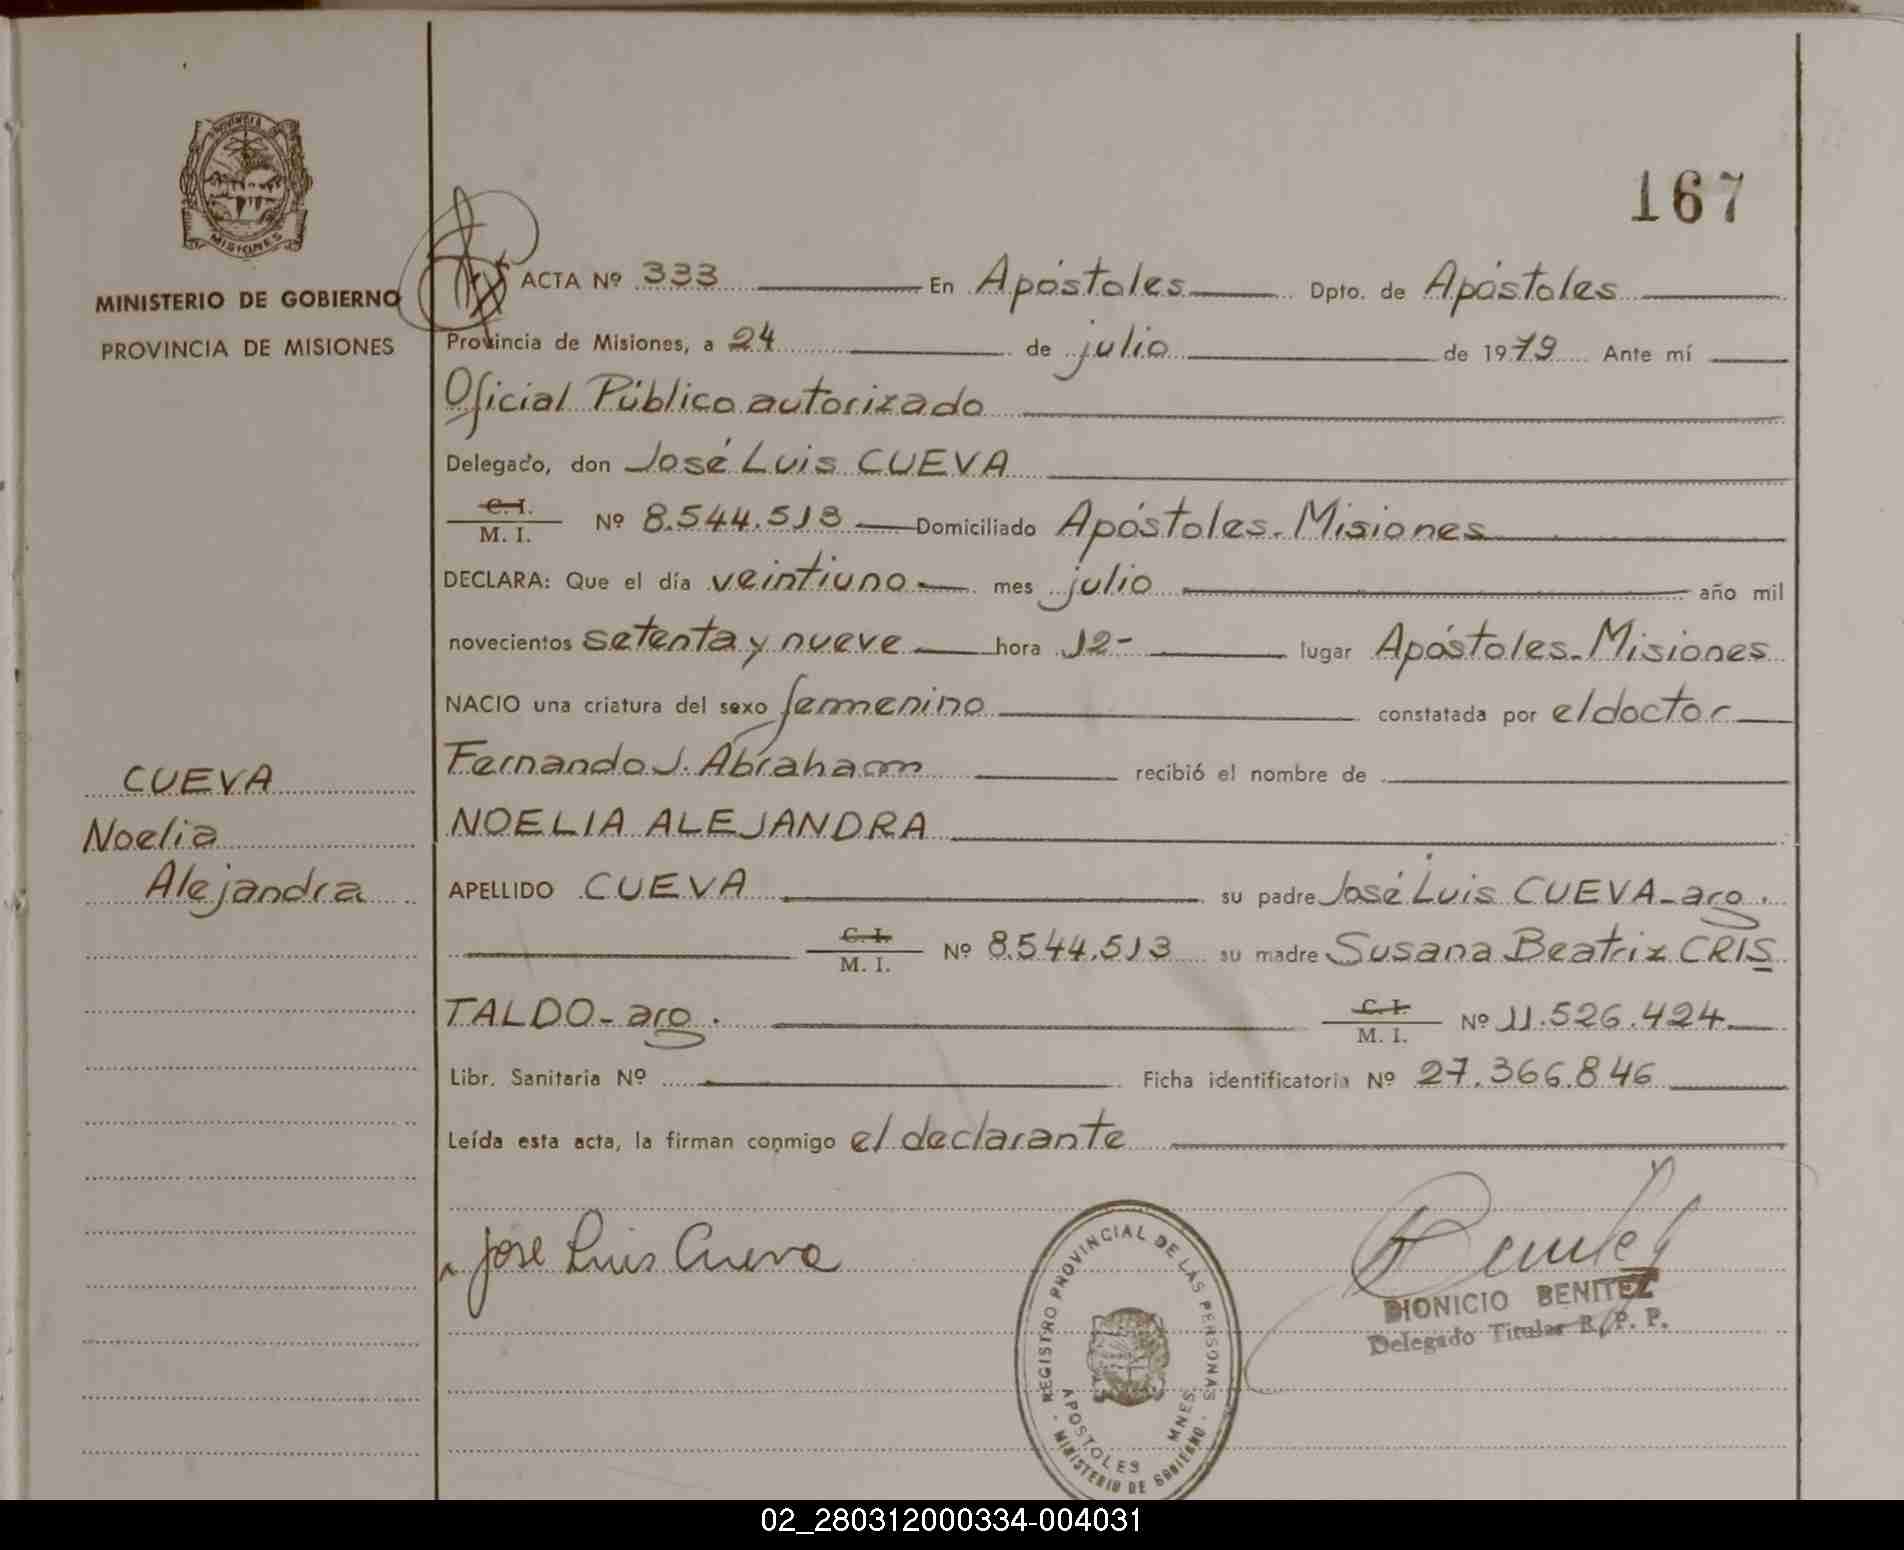 167
PROVINCIA DE
MISIONES
MINISTERIO DE GOBIERNO
PROVINCIA DE MISIONES
ACTA Nº 333 En Apóstoles Dpto. de Apóstoles
Provincia de Misiones, a 24 de julio de 1979 Ante mí
Oficial Público autorizado
Delegado, don José Luis CUEVA
C. I.
M. I. Nº 8.544.513 Domiciliado Apóstoles-Misiones
DECLARA: Que el día veintiuno mes julio año mil
novecientos setenta y nueve hora 12- lugar Apóstoles-Misiones
NACIO una criatura del sexo femenino constatada por el doctor
Fernando J. Abraham recibió el nombre de
CUEVA
Noelia
Alejandra
NOELIA ALEJANDRA
APELLIDO CUEVA su padre José Luis CUEVA-arg.
C. I.
M. I. Nº 8.544.513 su madre Susana Beatriz CRIS
TALDO-arg. C. I.
M. I. Nº 11.526.424
Libr. Sanitaria Nº Ficha identificatoria Nº 27.366.846
Leída esta acta, la firman conmigo el declarante
José Luis Cueva
REGISTRO PROVINCIAL DE LAS PERSONAS
APOSTOLES MNES.
- MINISTERIO DE GOBIERNO -
DIONICIO BENITEZ
Delegado Titular R. P. P.
02_280312000334-004031